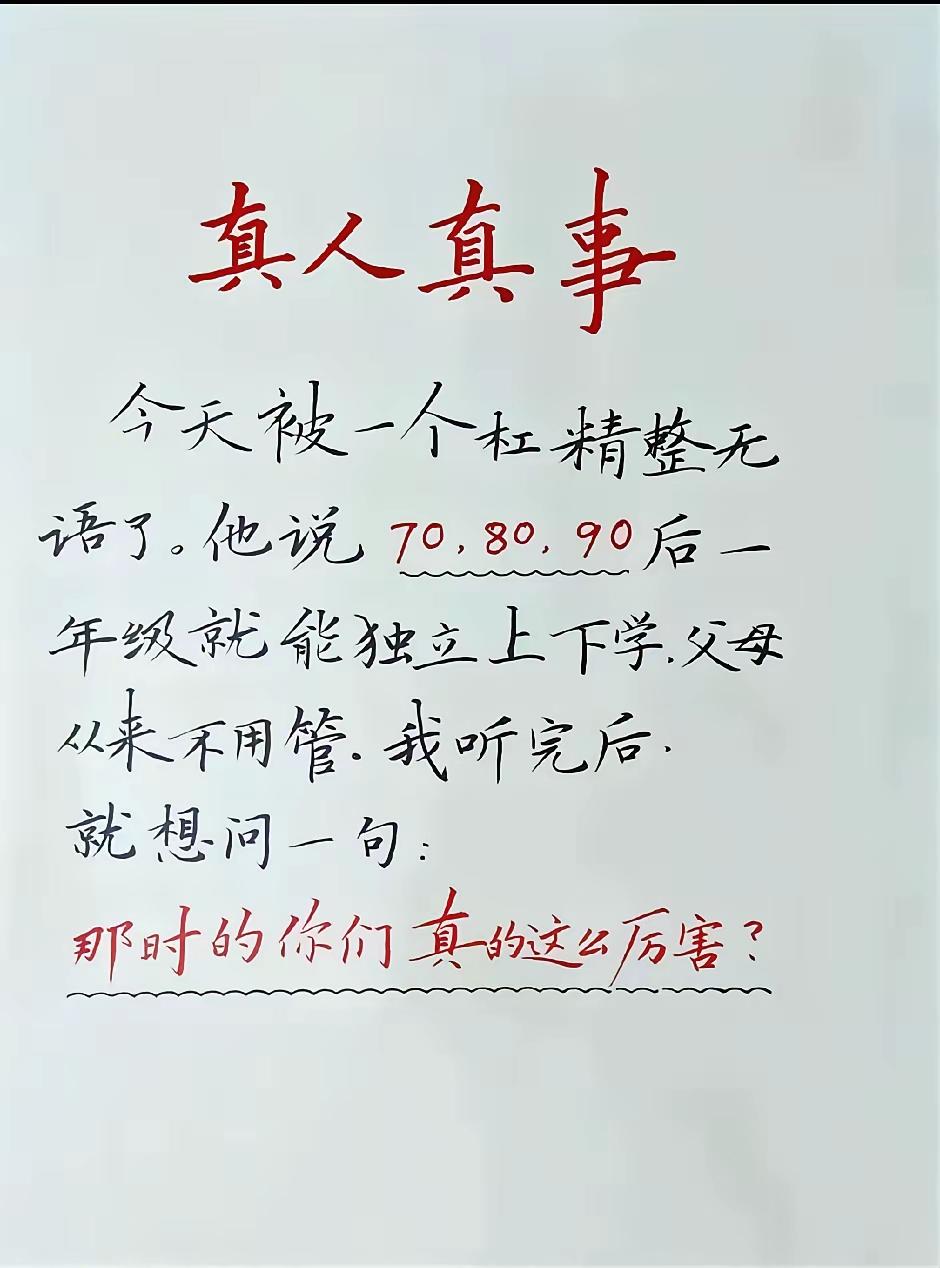 真人真事
今天被一个杠精整无
语了。他说70,80,90后一
年级就能独立上下学.父母
从来不用管.我听完后.
就想问一句:
那时的你们真的这么厉害?